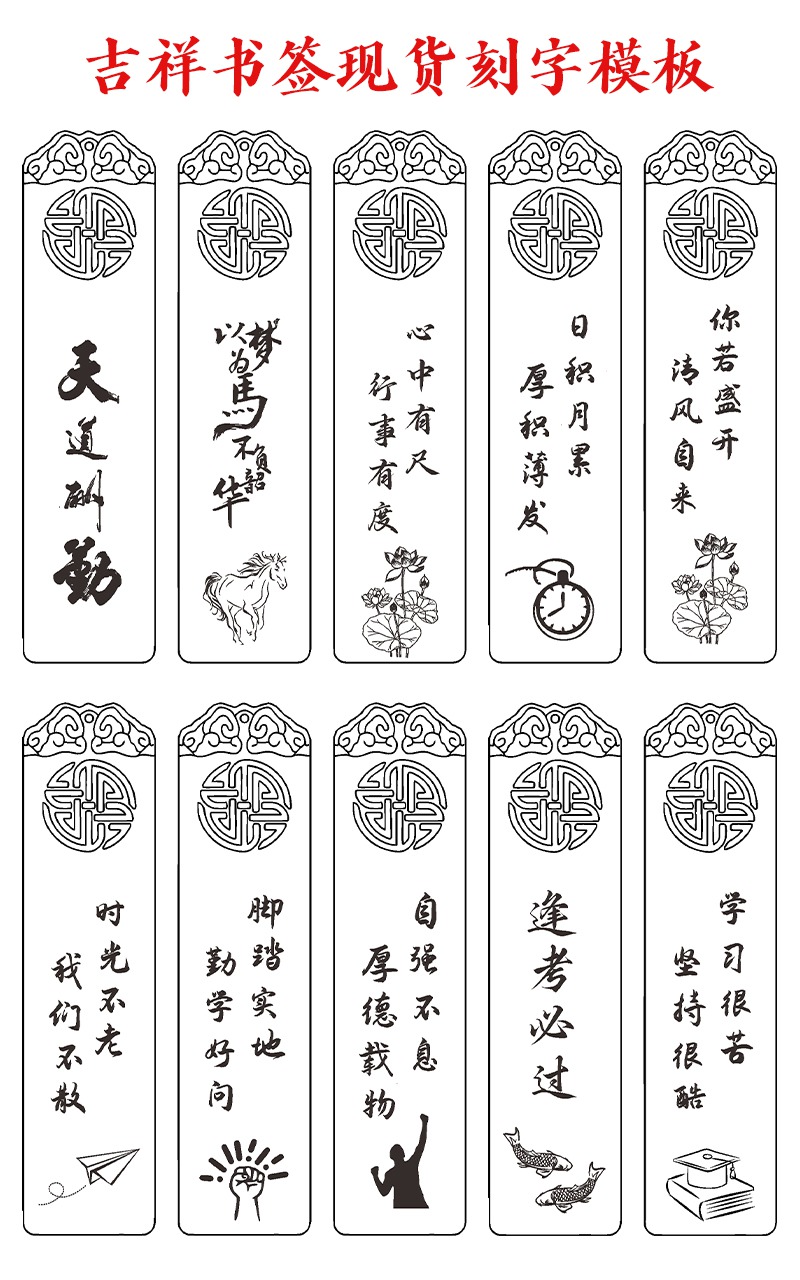 吉祥书签现货刻字模板
天道酬勤
以梦为馬
不負韶华
心中有尺
行事有度
日积月累
厚积薄发
你若盛开
清风自来
时光不老
我们不散
脚踏实地
勤学好问
自强不息
厚德载物
逢考必过
学习很苦
坚持很酷